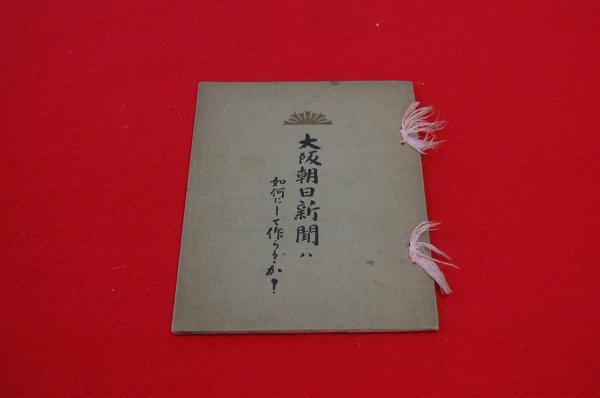 大阪朝日新聞ハ
如何にして作らるゝか？